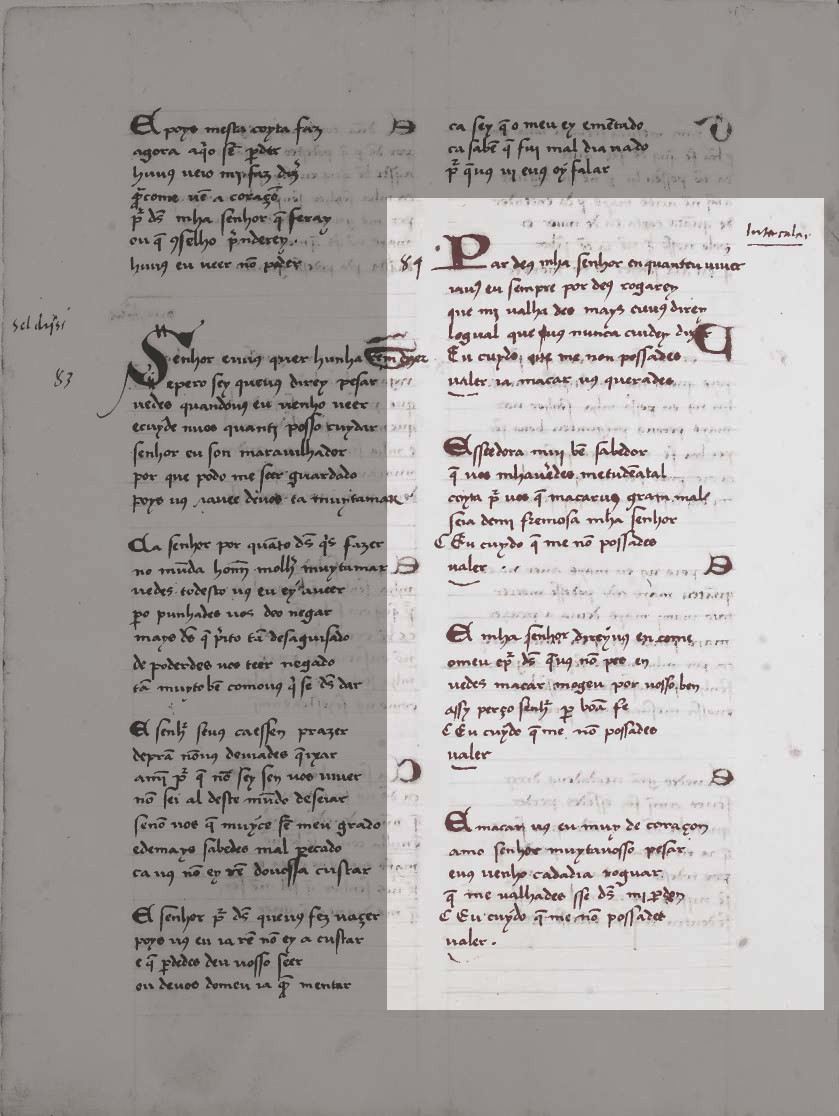 El poys mesta coyta faz
agora aq̃o sẽ p̃der
huius veio mi faz dȝ
q̃come vẽ a coraçõ
pʳ ds̃ mha senhor q̃ feray
ou q̃ ꝯselho pʳnderey
huius eu veer nõ poder
Senhor euius quer hunha rem dizer
epero sey queuus direy pesar
vedes quandouus eu uenho veer
ecuyde nuos quantj posso cuydar
senhor eu son marauilhador
por que podo me seer guardado
poys uus
Ca senhor por quãto ds̃ q̃s fazer
no mũda homẽ molh̃ muytamar
uedes todesto uus eu ey
ꝑo punhades uos deo negar
mays ds̃ q̃ pʳito tã desaguisado
de poderdes uos teer negado
tã muyto bẽ comouus q̃ se ds̃ dar
E senhʳ seuus caessen prazer
deprã nõuus deuiades q̃ixar
amj pʳ q̃ nõ sey sen uos uiuer
nõ sei al deste mũdo deseiar
senõ uos q̃ muyce fẽ meu grado
edemays sabedes mal pecado
ca uus nõ ey rẽ douossa custar
E senhor pʳ ds̃ queuus fez naçer
poys uus eu ia rẽ nõ ey a custar
e q̃ p̃dedes deu uosso seer
ou deuos domeu ia q̃ʳ mentar
ca sey q̃ o meu ey emẽtado
ca sabẽ q̃ fui mal dia nado
pʳ q̃uus ui euus oy falar
sel diʃsi
83
84
Par deus mha senhor en quanteu uiuer
iauus eu sempre por deus rogarey
que mi ualha des mays euus direy
logual que uus nunca cuidey dizer
Eu cuydo que me non possades
ualer ia macar uus querades
Essedora muj bẽ sabedor
q̃ uos mhauẽdes metudẽ atal
coyta pʳ uos q̃ macaruus gram mal
seia demj fremosa mha senhor
C Eu cuydo q̃ me nõ possades
ualer
E mha senhor direyuus en come
omeu epʳ ds̃ q̃uus nõ pes en
uedes macar mogeu por uosso ben
assy perço senhʳ ꝑ boã fe
C Eu cuydo q̃ me nõ possades
ualer
E macar uus eu muy de coraçon
amo senhor muytuuosso pesar
euus uenho cadadia roguar
q̃ me ualhades sse ds̃ mi pʳden
C Eu cuydo q̃ me nõ possades
ualer